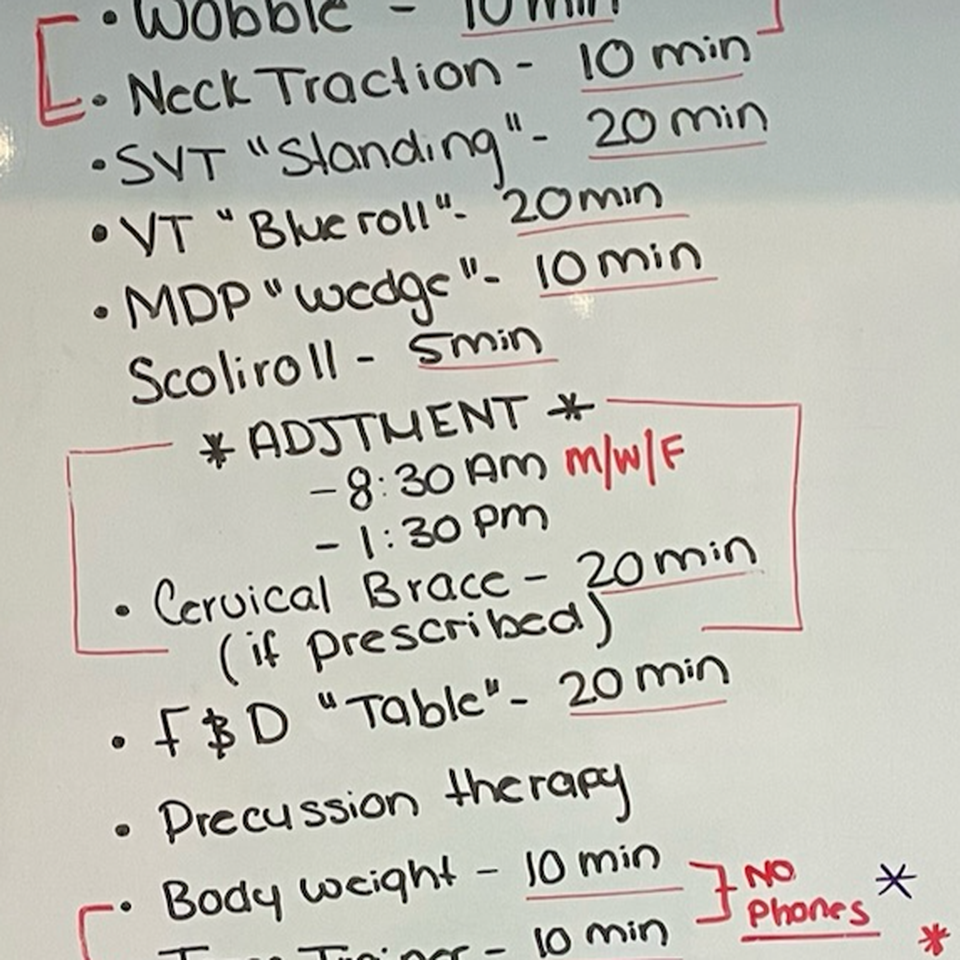 • Wobble - 10 min
• Neck Traction - 10 min
• SVT "Standing" - 20 min
• VT "Blue roll" - 20 min
• MDP "wedge" - 10 min
Scoliroll - 5 min
* ADJTMENT *
- 8:30 AM M/W/F
- 1:30 pm
• Cervical Brace - 20 min
(if prescribed)
• F & D "Table" - 20 min
• Precussion therapy
• Body weight - 10 min } NO *
- 10 min Phones *